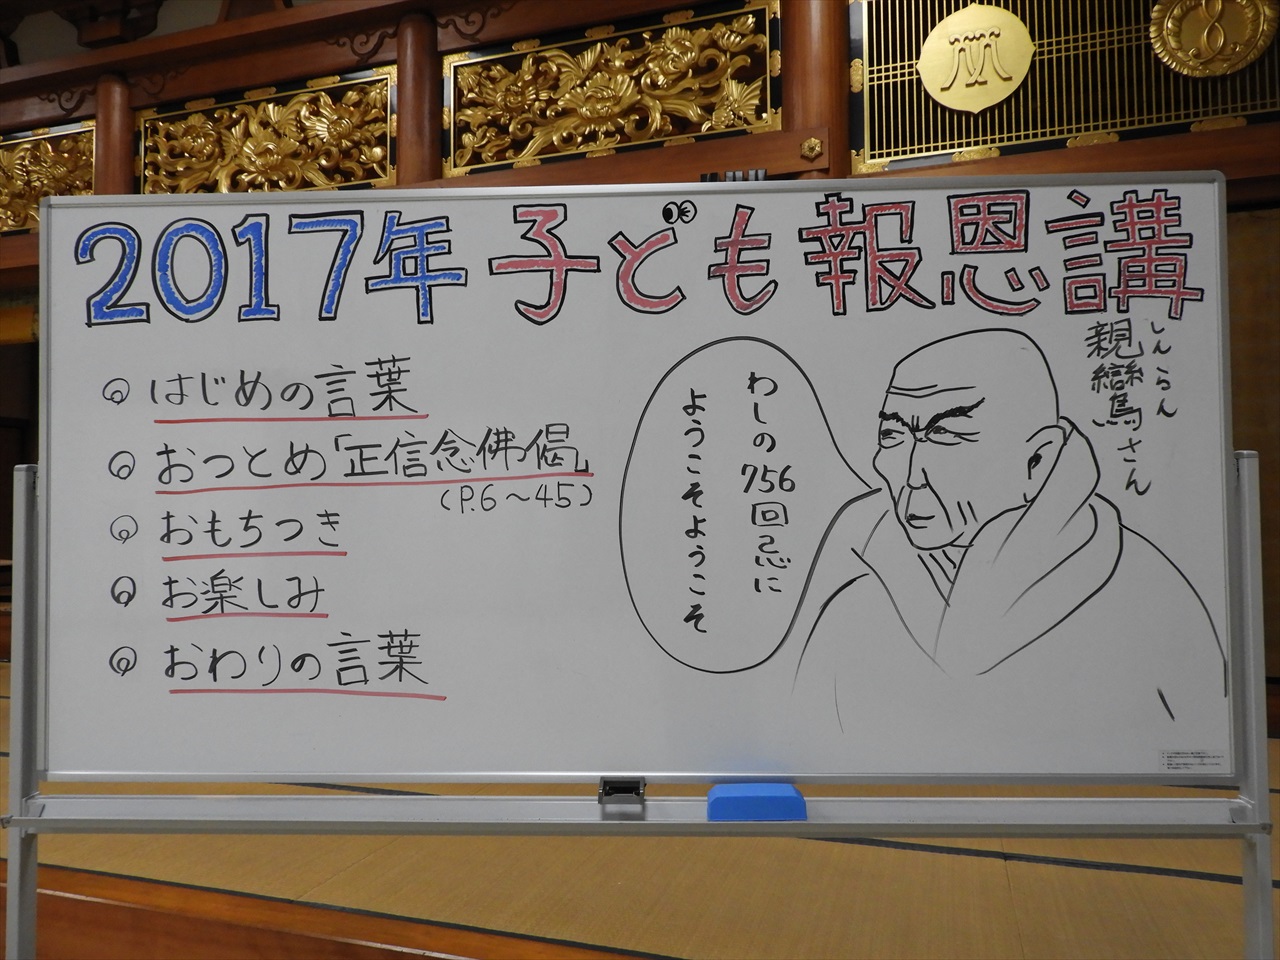 2017年 子ども報恩講
◎ はじめの言葉
◎ おつとめ「正信念佛偈」
(P.6〜45)
◎ おもちつき
◎ お楽しみ
◎ おわりの言葉
わしの756回忌に
ようこそようこそ
しんらん
親鸞さん